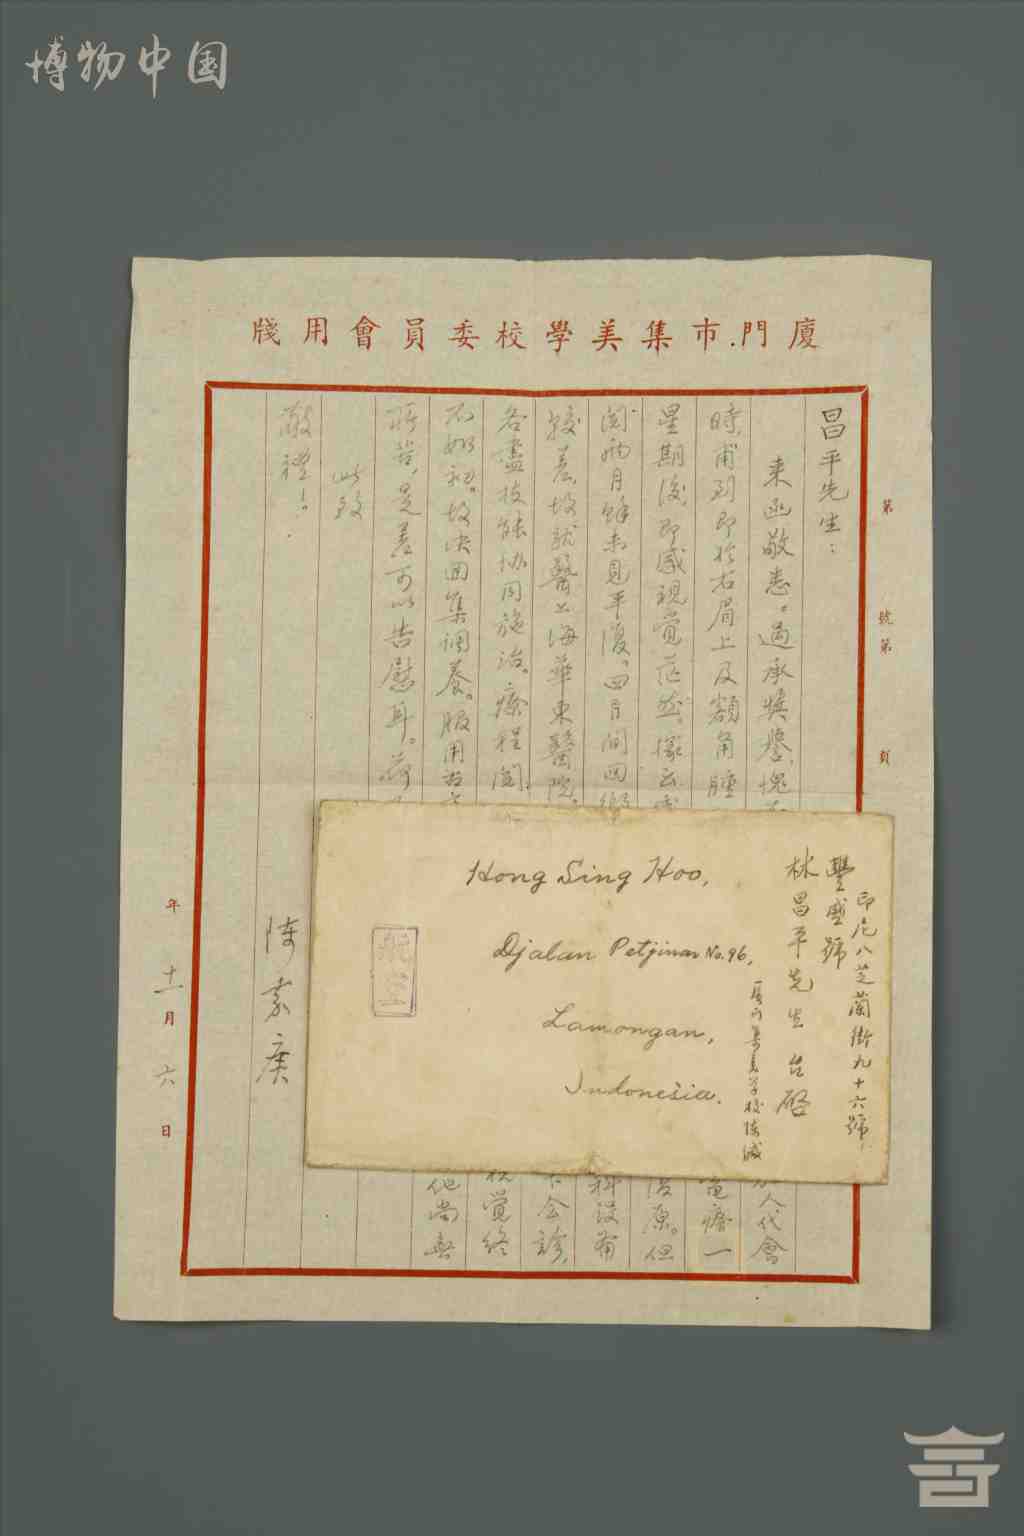 博物中国
廈門市集美學校委員會用牋
第 號第 頁
昌平先生：
來函敬悉。過承獎譽，愧
人代會
時，甫到即於右眉上及額角腫
電療一
星期後，即感視覺茫然。據云
復原。但
閱兩月餘未見平復。四月間回鄉
科設備
較差，故就醫上海華東醫院。
會診，
各盡技能協同施治。療程閱
視覺終
不如初。故決回集調養。服用
他尚無
所苦，是差可以告慰耳。
此致
敬禮！
陳嘉庚
年十一月六日
印尼八芝蘭街九十六號
豐盛號
林昌平先生 台啓
廈門集美學校陳緘
航空
Hong Sing Hoo,
Djalan Petjinan No. 96,
Lamongan,
Indonesia.